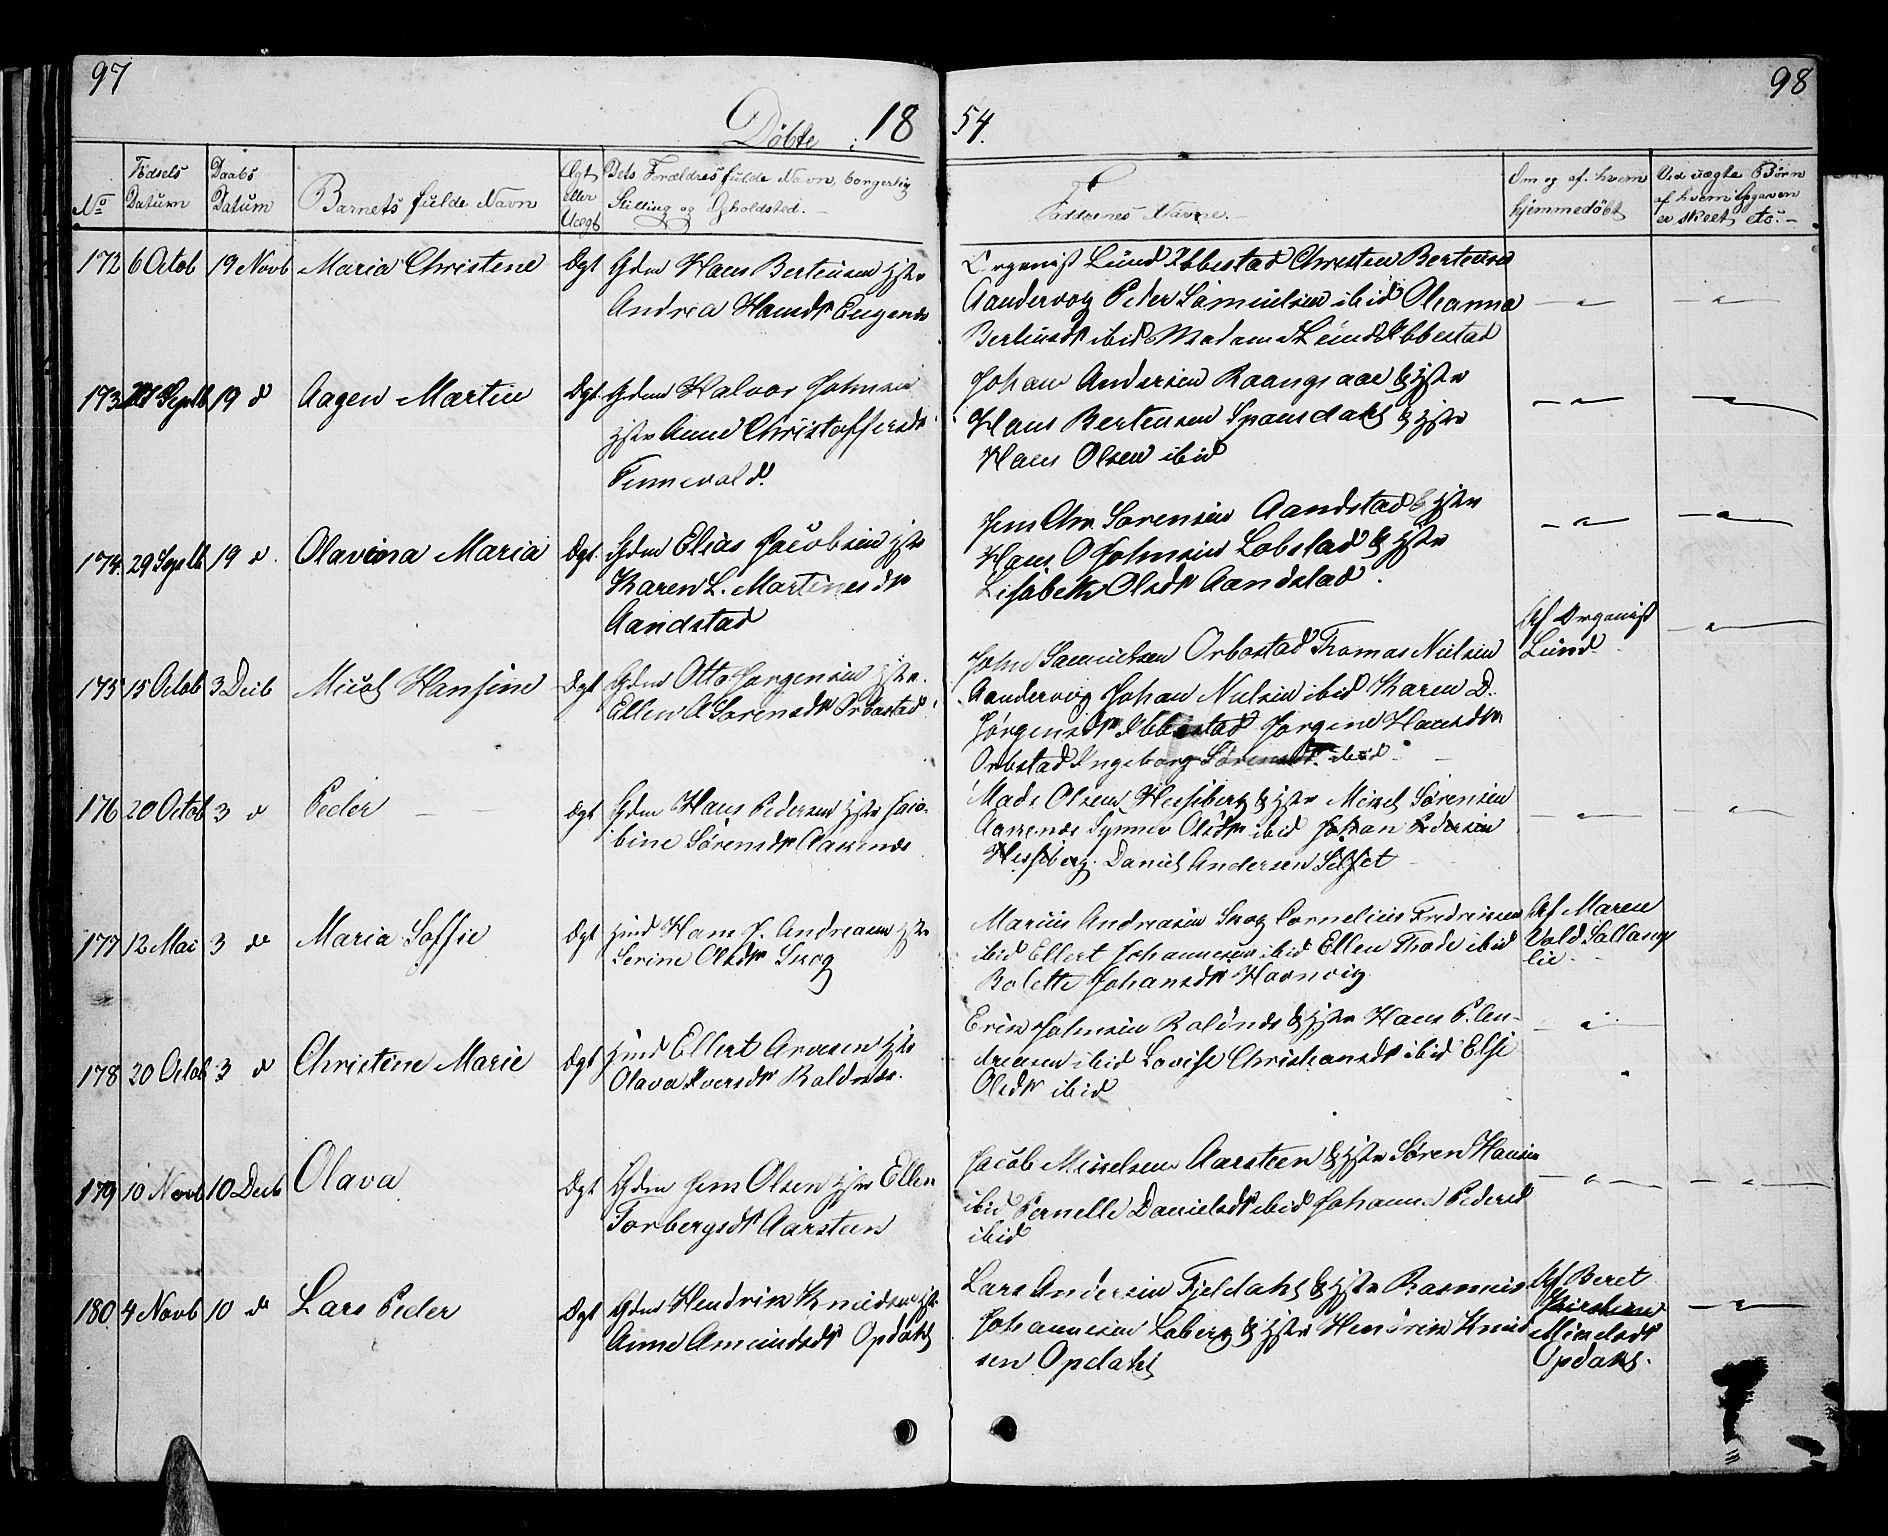 97
98
Döbte 18 54.
No
Födsels Datum
Daabs Datum
Barnets fulde Navn
Ægt eller Uægt
Dets Forældres fulde Navn, borgerlig Stilling og Opholdsted.
Faddernes Navne.
Om og af hvem hjemmedöbt
Ved uægte Börn af hvem Opgaven er skeet etc.
172 6 Octob 19 Novb Maria Christene Ægt Gdm Hans Bertensen Hstr
Andrea Hansdr Engenes
Organist Lund Ibbestad Christen Bertensen
Aandervog Peder Samuelsen ibid Oleanna
Bertensdr ibid Madame Lund Ibbestad
173 Septb 19 d Aagen Martin Ægt Gdm Halvor Johnsen
Hstr Anne Christoffersdr
Tennevold.
Johan Andersen Raangsaae & Hstr
Hans Bertensen Spansdahl & Hstr
Hans Olsen ibid
174 29 Septb 19 d. Olavina Maria Ægt Gdm Elias Jacobsen Hstr
Karen L. Martinesdr
Aandstad
Jens Chr. Sorensen Aandstad & Hstr
Hans O Johnsen Lobstad & Hstr
Lisabeth Olsdr Aandstad.
175 15 Octob 3 Decb Micol Hansine Ægt Gdm Otto Jorgensen Hstr.
Ellen A Sorensdr Orbostad
John Samuelsen Orbostad Thomas Nielsen
Aandervog Johan Nielsen ibid Karen D.
Jörgensdr Ibbestad Jorgine Hansdr
Orbstad Ingeborg Sörensdr ibid
Af Organist
Lund
176 20 Octob 3 d Peder Ægt Gdm Hans Pedersen Hstr Jaco-
bine Sörensdr Aarsnes
Mads Olsen Hessberg & Hstr Mikel Sörensen
Aarsnes Synnev Olsdr ibid Johan Pedersen
Hessberg. Daniel Andersen Selset
177 12 Mai 3 d Maria Soffie Ægt Hmd Hans J. Andreasen Hstr
Serine Olsdr Krog
Marius Andreasen Krog Cornelius Fredriksen
ibid Ellert Johannesen ibid Ellen Thode ibid
Bolette Johansdr Havnvig
Af Maren
Vold Sallangs
lie.
178 20 Octob 3 d Christine Marie Ægt Hmd Ellert Arnesen Hstr
Olava Iversdr Roldnes.
Erik Johnsen Rolnes & Hstr Hans P. An-
dreasen ibid Lovise Christiansdr ibid Else
Olsdr ibid
179 10 Novb 10 Decb Olava Ægt Gdm Jens Olsen Hstr Ellen
Torbergsdr Aarsteen
Jacob Mikelsen Aarsteen & Hstr Sören Hansen
ibid Pernelle Danielsdr ibid Johanna Pedersd
ibid
180 4 Novb 10 d Lars Peder Ægt Gdm Hendrik Knudsen Hstr
Anne Amundsdr Opdahl
Lars Andersen Fjeldahl & Hstr Rasmus
Johannesen Loberg & Hstr Hendrik Knud
sen Opdahl
Af Beret
Mikelsdr
Opdahl.